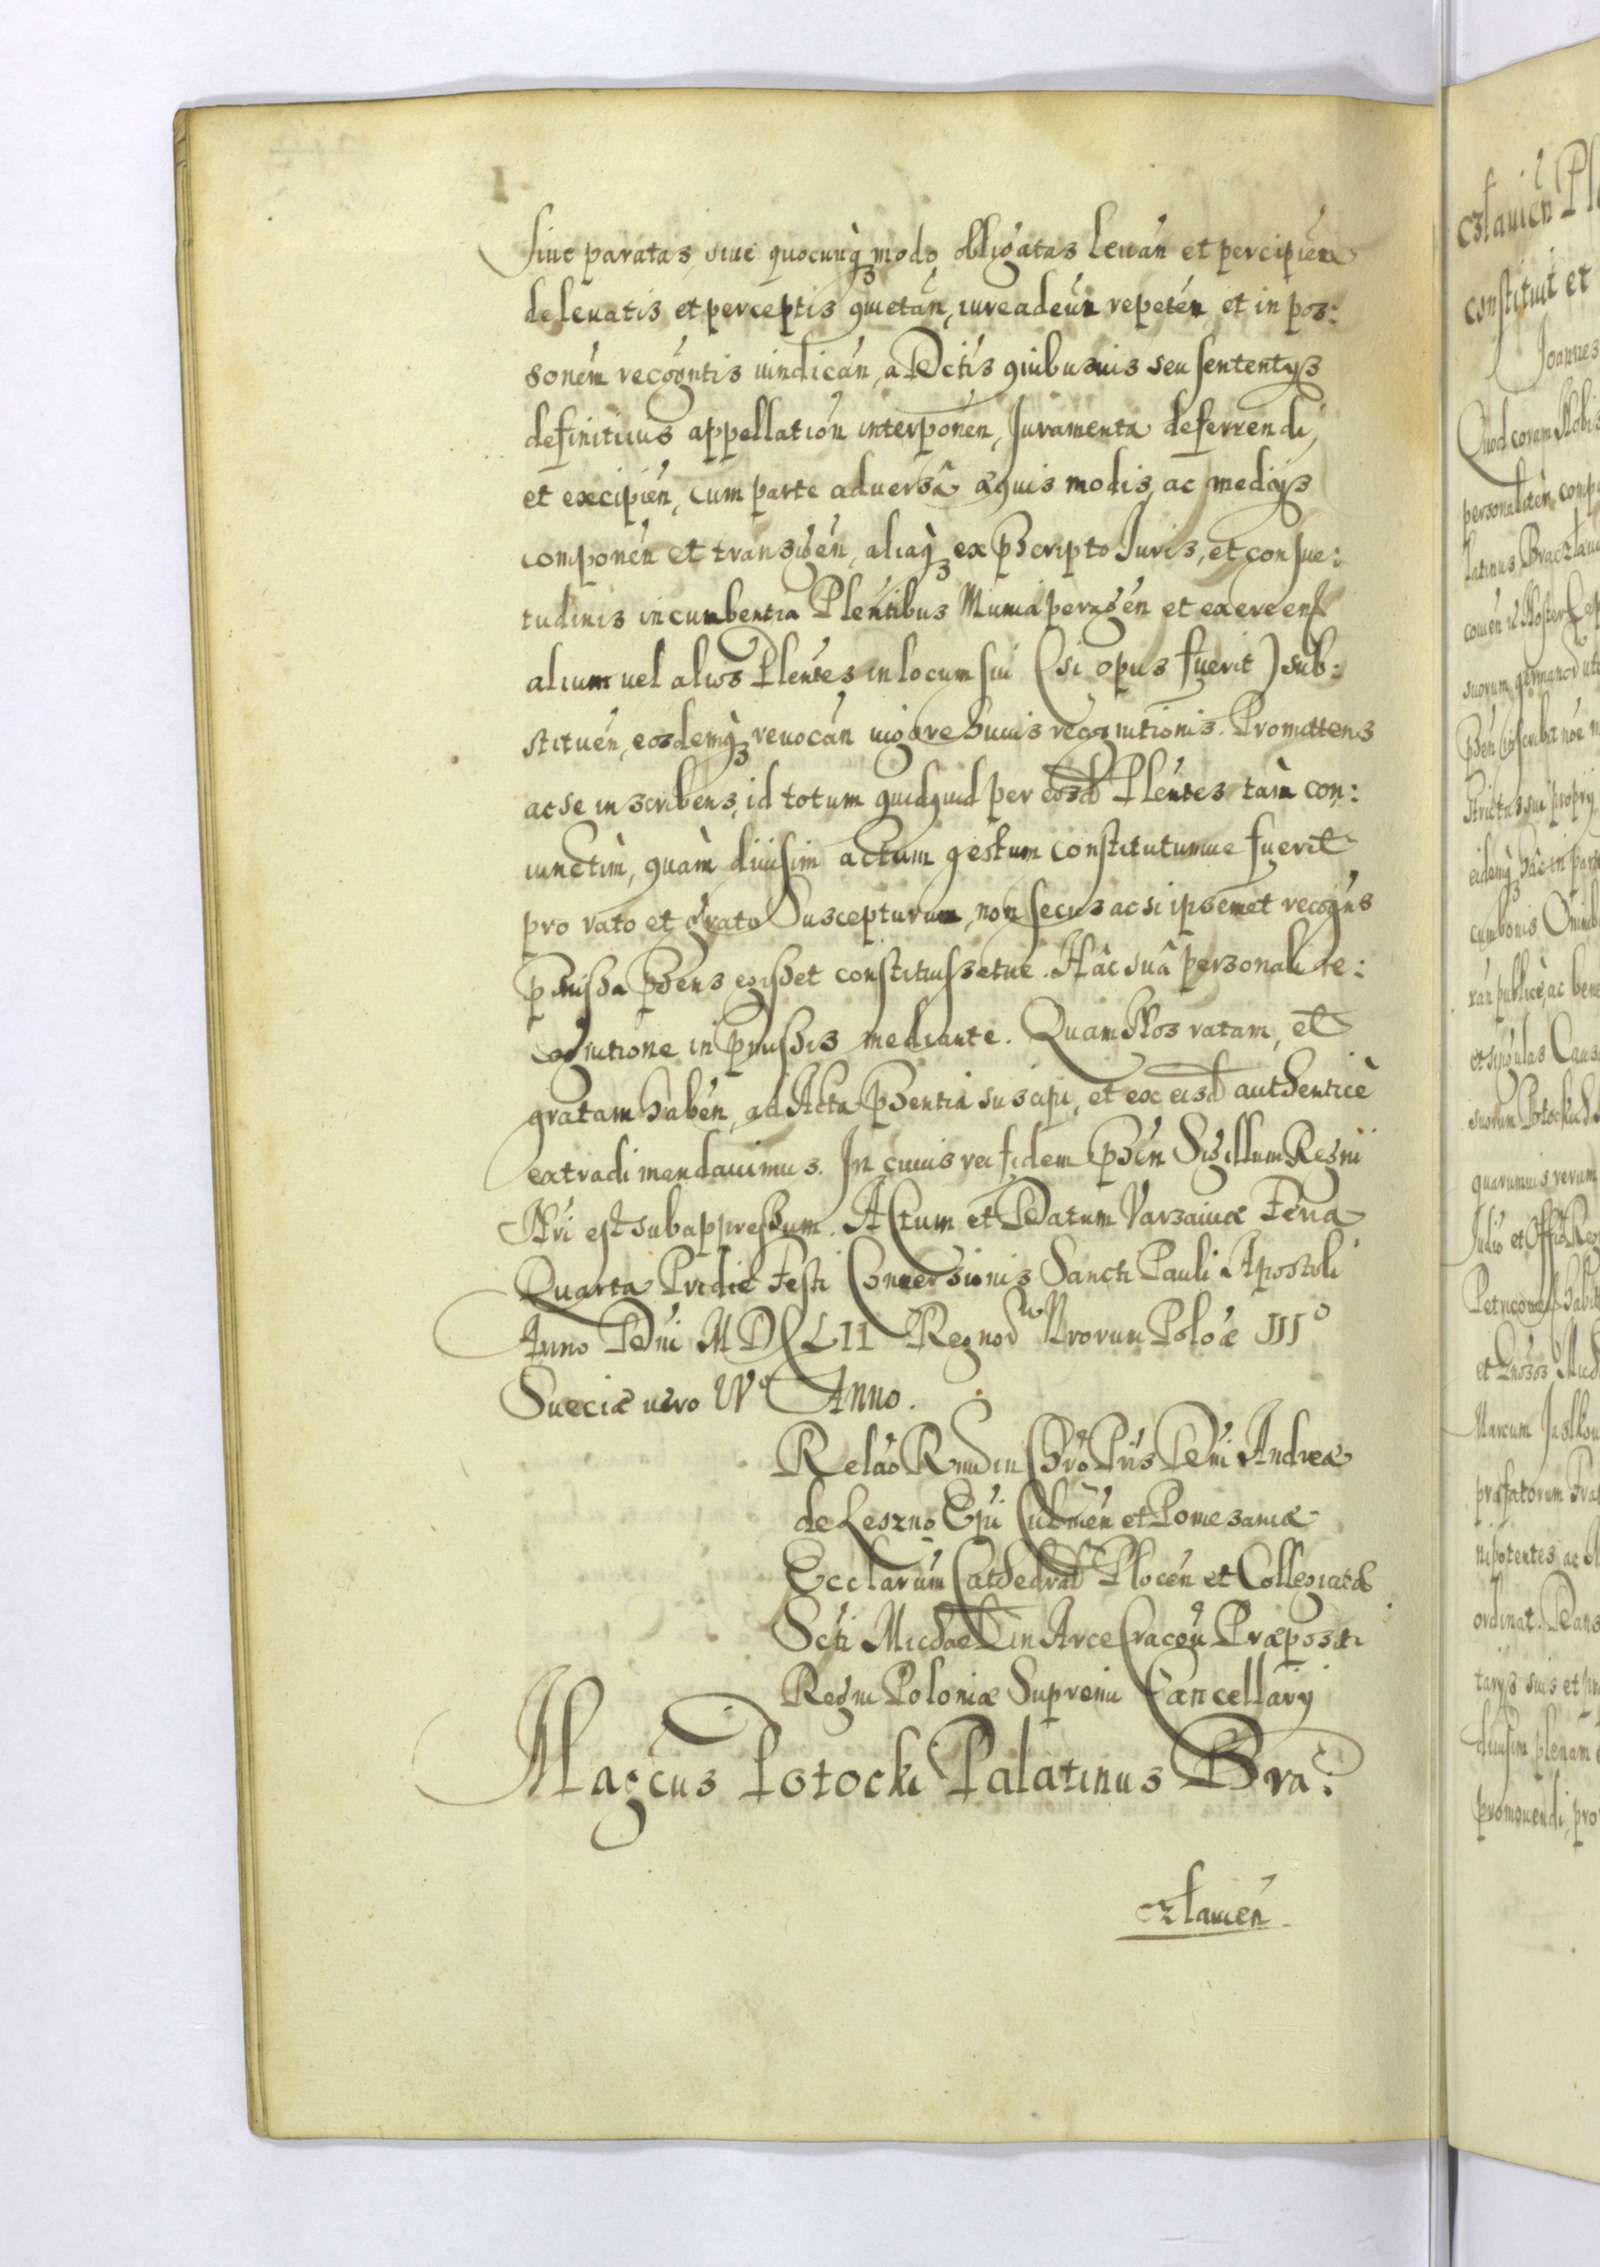 siue paratas, siue quocunq; modo obligatas Leuán et percipién
de leuatis et perceptis quietán, iure adeún repetén et in pos:
soném recogntis uindicán, a Dctis quibusuis seu sententys
definitiuis appellatión interponén, Juramenta deferrendi,
et excipién, cum parte aduersâ æquis modis, ac medys
componén et transigén, aliaq; ex pscripto Juris, et consue:
tudinis incumbentia Plentibus Munia peragén et exercen
alium uel alios Plentes in locum sui (si opus fuerit) sub:
stituén, eosdemq; reuocán uigore huius recognitionis. Promittens
ac se inscribens, id totum quidquid per eosd Plentes tàm con:
iunctìm, quàm diuisim actum gestum constitutumue fuerit
pro rato et grato Suscepturum, non secus ac si ipsemet recogns
pmissa psens egisset constituissetue. Hâc suâ personali re:
cognitione in pmissis mediante. Quam Nos ratam, et
gratam habén, ad Acta psentia suscipi, et ex eisd authenticè
extradi mandauimus. In cuius rei fidem psén Sigillum Regni
Nri est subappressum. Actum et Datum Varsauiæ Feria
Quarta Pridie Festi Conuersionis Sancti Pauli Apostoli
Anno Dni MDCLII Regnor Nrorum Poloæ IIIo
Sueciæ uero IVo Anno.
Relao Rndi in Chro Pris Dni Andreæ
de Leszno Epi Culmén et Pomesaniæ
Ecclarum Cathedral Plocén et Collegiatæ
Scti Michael in Arce Cracou Præpositi
Regni Poloniæ Supremi Cancellarij
Magcus Potocki Palatinus Bra:
czlauién
czlauién Pl
constituit et
Joannes
Quod coram Nobis
personalitèr comp
latinus Braczlaui
suorum germanor
Strictus sui propry
rán publicè, ac bene
et singulas Caus
suorum Potockich
quarumuis rerum
Marcum Jaslkou
præfatorum Fra
nipotentes ac
ordinat. Dans
tarys suis et
diuisim plenam
promouendi, pro